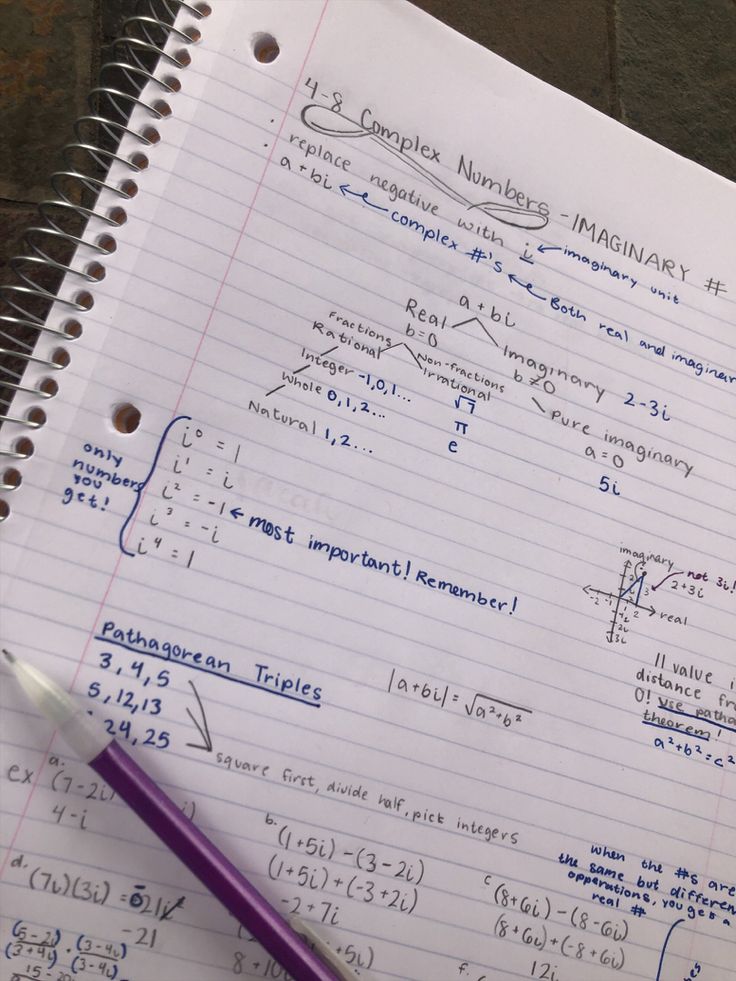 4-8 Complex Numbers - IMAGINARY #
· replace negative with i ← imaginary unit
· a + bi ← complex #'s ← Both real and
a + bi
Real
b=0
Imaginary
b ≠ 0
2-3i
Fractions
Rational
Non-fractions
Irrational
Integer -1,0,1...
√7
Whole 0,1,2...
π
Natural 1,2...
e
Pure imaginary
a=0
5i
only
numbers
you
get!
i⁰ = 1
i¹ = i
i² = -1 ← most important! Remember!
i³ = -i
i⁴ = 1
imaginary
not 3i!
2+3i
real
-2 -1 1 2
3
2i
3i
Pathagorean Triples
3, 4, 5
5, 12, 13
24, 25
square first, divide half, pick integers
|a+bi| = √a²+b²
|| value
distance
0! use
theorem!
a²+b²=c²
ex
a.
(7-2i)
4-i
b.
(1+5i)-(3-2i)
(1+5i)+(-3+2i)
-2+7i
c
(8+6i)-(8-6i)
(8+6i)+(-8+6i)
12i
when the #s are
the same but
opperations, you get a
real #
d.
(7i)(3i) = 21i²
-21
(5-2i) · (3-4i)
(3+4i) (3-4i)
+5i)
f.